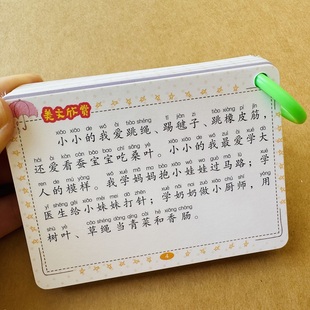 美文欣赏
xiǎo xiǎo de wǒ ài tiào shéng tī jiàn zi tiào xiàng pí jīn
小小的我爱跳绳、踢毽子、跳橡皮筋，
hái ài kàn cán bǎo bao chī sāng yè xiǎo xiǎo de wǒ zuì ài xué dà
还爱看蚕宝宝吃桑叶。小小的我最爱学大
rén de mú yàng wǒ xué mā ma bào xiǎo wá wa guò mǎ lù xué
人的模样。我学妈妈抱小娃娃过马路；学
yī shēng gěi xiǎo mèi mei dǎ zhēn xué nǎi nai zuò xiǎo chú shī yòng
医生给小妹妹打针；学奶奶做小厨师，用
shù yè cǎo shéng dāng qīng cài hé xiāng cháng
树叶、草绳当青菜和香肠。
4